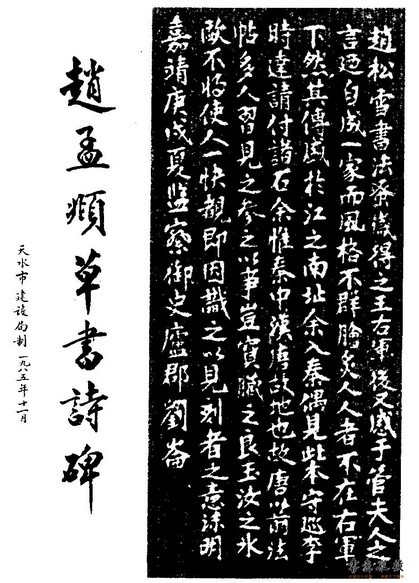 趙松雪書法蚤歲得之王右軍後又感于管夫人之
言迺自成一家而風格不群膾炙人人者不在右軍
下然其傳盛於江之南北余入秦偶見此本守巡李
時達請付諸石余惟秦中漢唐故地也故唐以前法
帖多人習見之参之以事豈寶之良玉汝之
不將使人一快覩即因識之以見刻者之意明
嘉靖庚戌夏監察御史廬郡劉崙
趙孟頫草書詩碑
天水市建設局制 一九八五年十一月